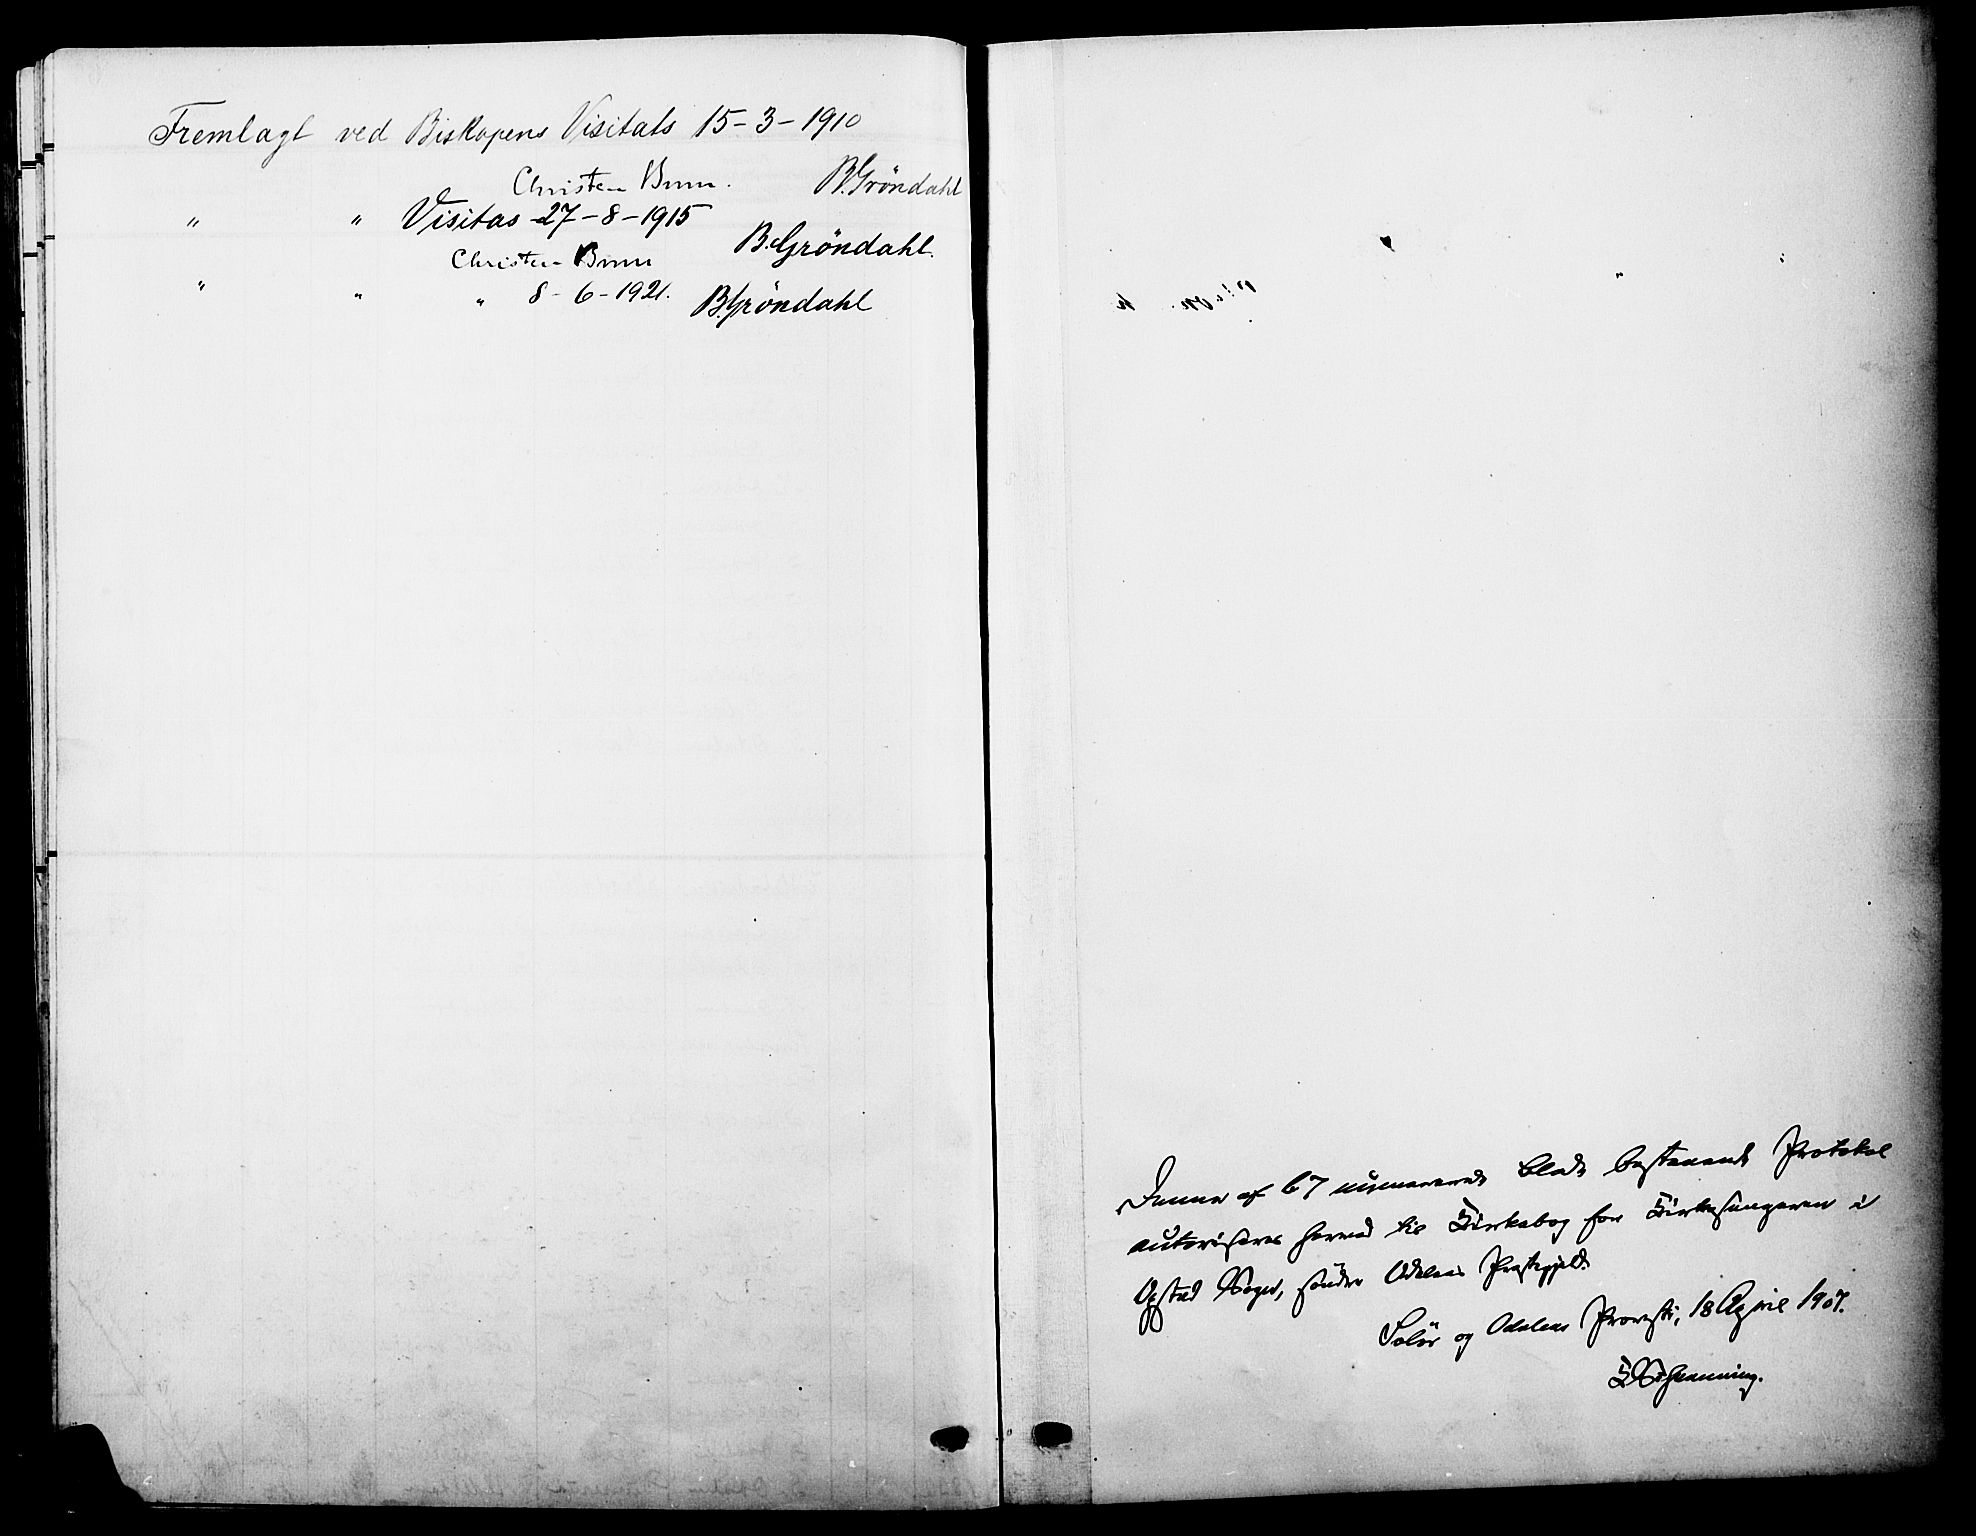 Fremlagt ved Biskopens Visitats 15-3-1910
Christen Brun. B. Gröndahl
" " Visitas 27-8-1915
Christen Brun B. Gröndahl.
" " " 8-6-1921. B. Gröndahl
Denne af 67 numererede Blade bestaaende Protokol
autoriseres herved til Kirkebog for Kirkesangeren i
Opstad Sogn, søndre Odalens Præstegjeld.
Solør og Odalens Provsti, 18 April 1907.